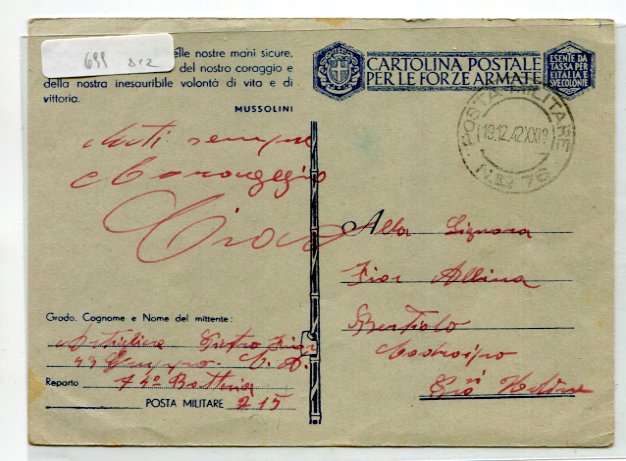 699 BIZ
elle nostre mani sicure,
del nostro coraggio e
della nostra inesauribile volontà di vita e di
vittoria.
MUSSOLINI
CARTOLINA POSTALE
PER LE FORZE ARMATE
ESENTE DA
TASSA PER
L'ITALIA E
LE COLONIE
POSTA MILITARE
19.12.42.XXI
N
sempre
Coraggio
Ciao
Alla Signora
Fior Albina
Bertiolo
Codroipo
Grado, Cognome e Nome del mittente:
Artigliere Pietro Fior
Gruppo
Reparto 74º Batteria
POSTA MILITARE 215